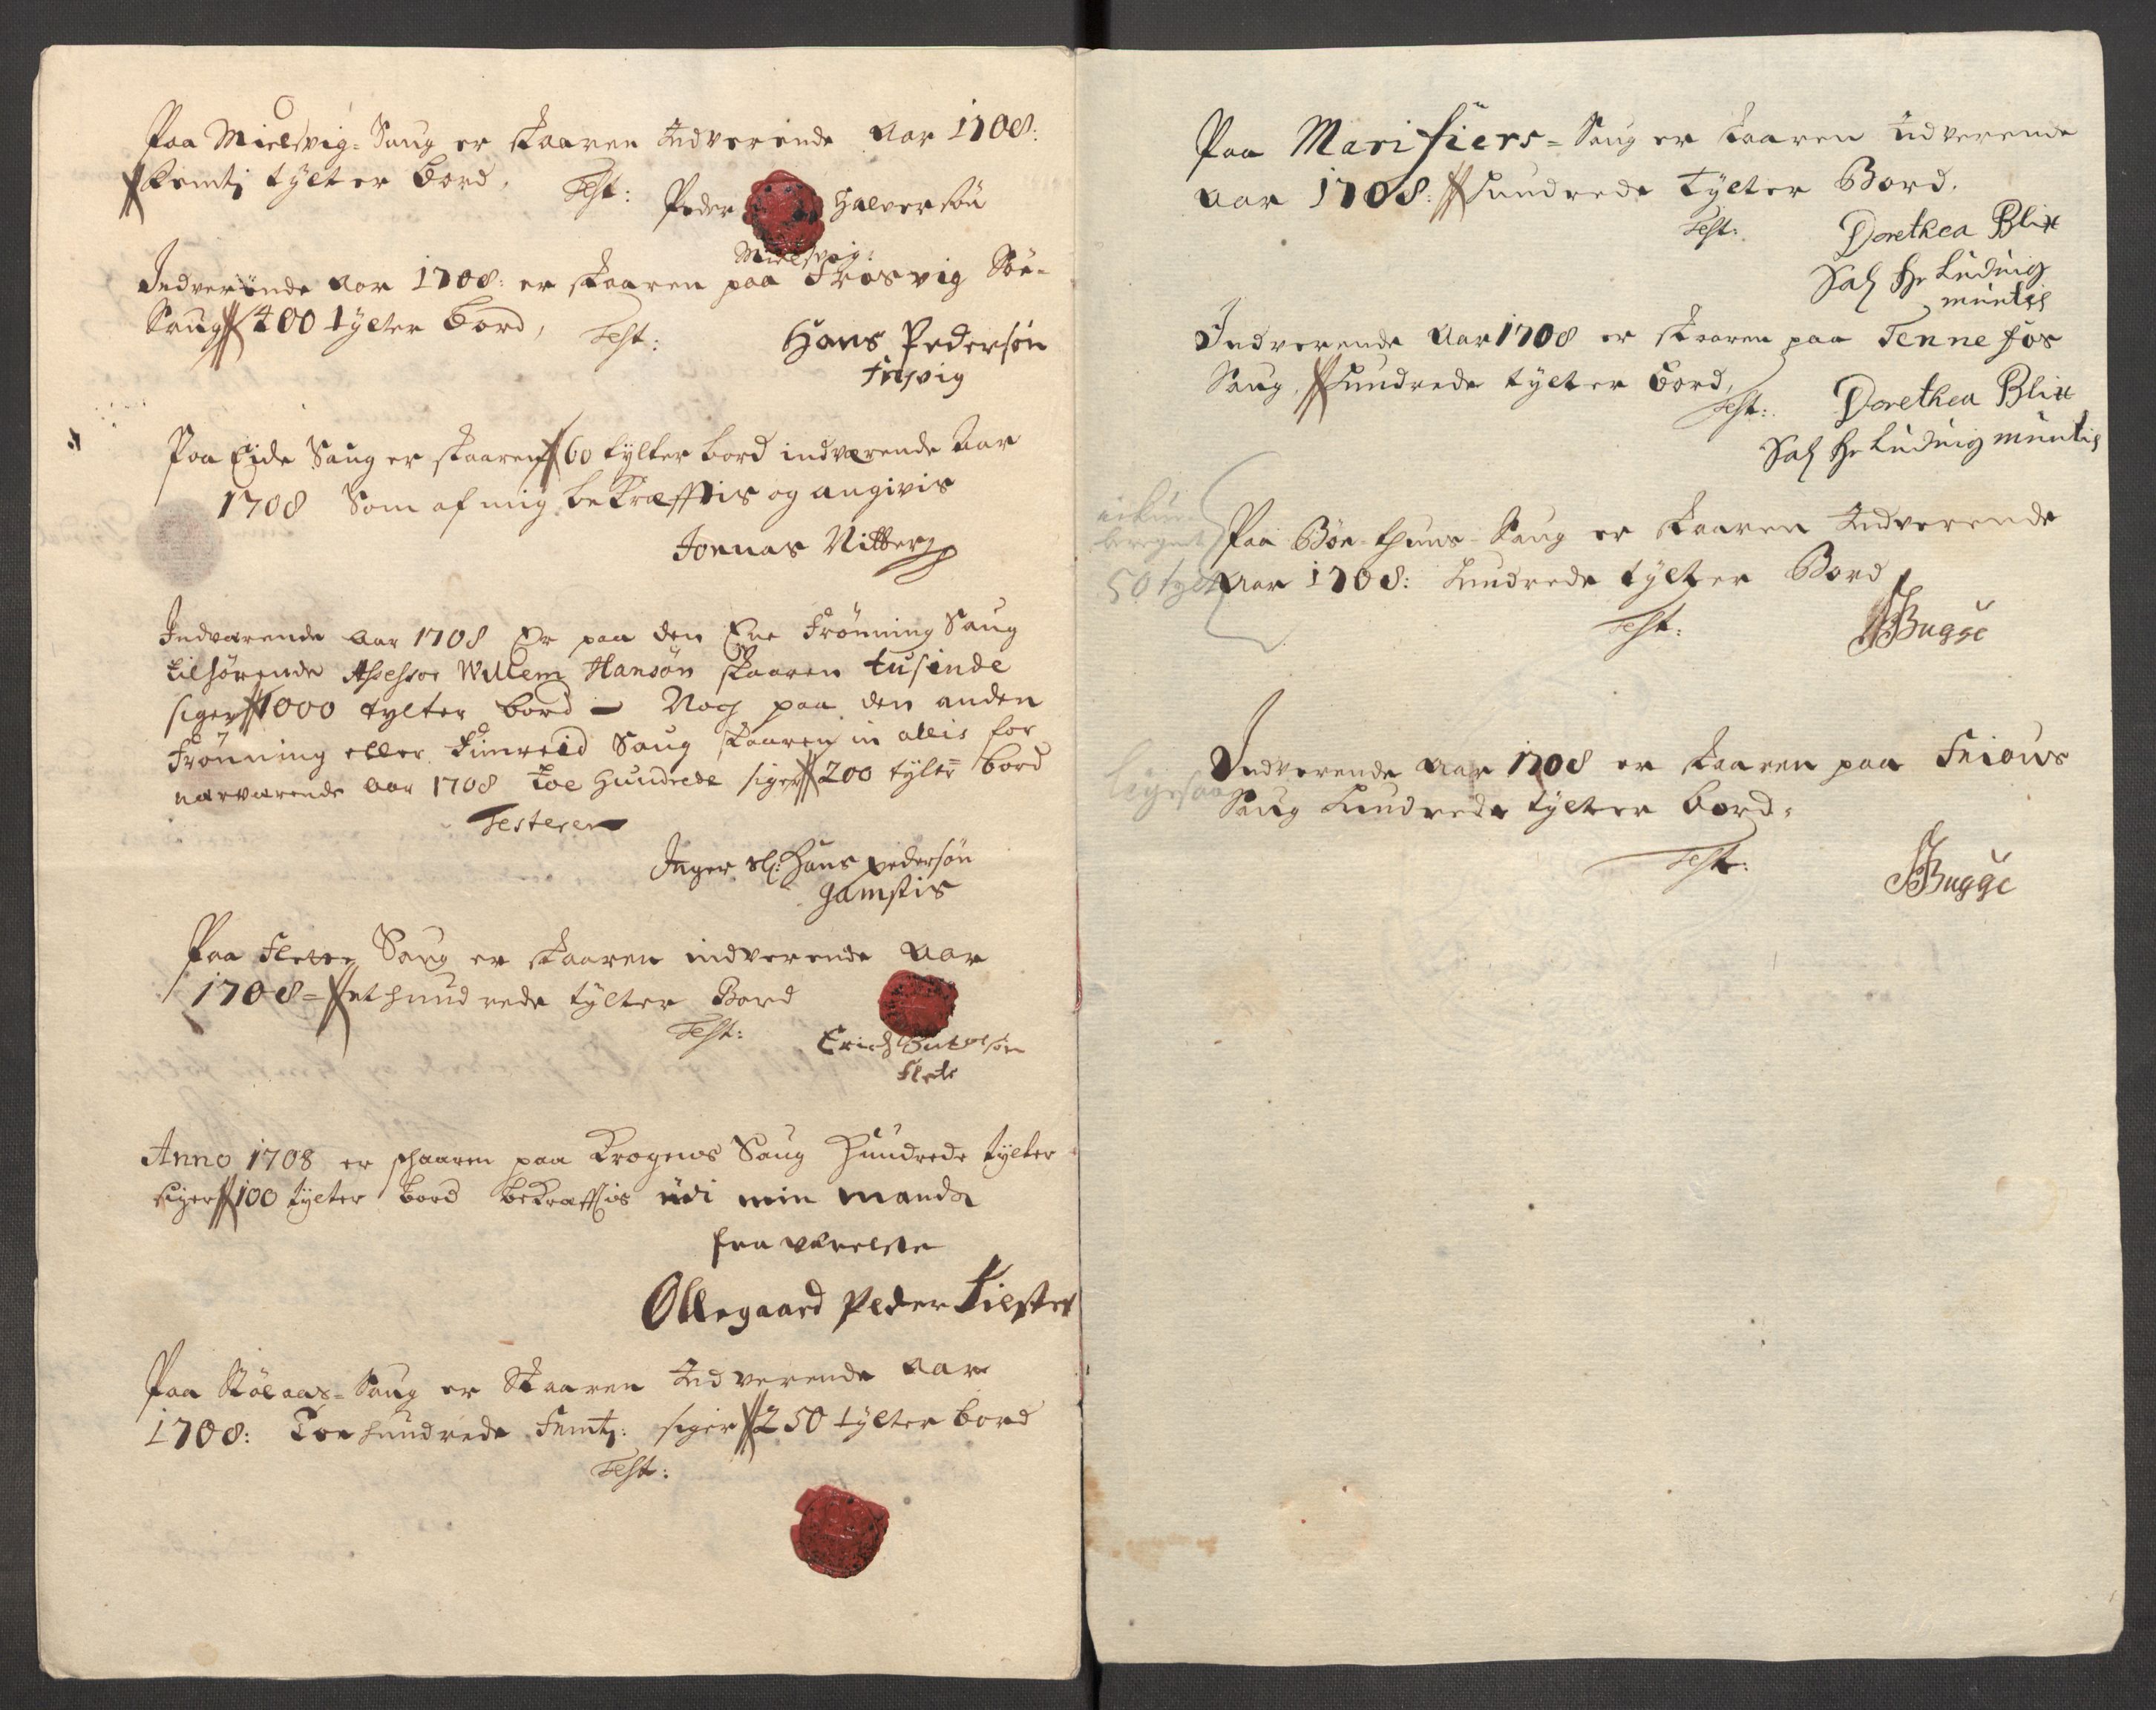 Paa Mielsvig-Saug er skaaren Indverende Aar 1708:
femti tylter bord.
Test: Peder Halversøn
Mielsvig:
Indverende Aar 1708: er skaaren paa Frøsvig Søe-
Saug 400 tylter bord,
Test: Hans Pedersøn
Frøsvig
Paa Eide Saug er skaaren 60 tylter bord indværende Aar
1708 Som af mig bekræfftis og angivis
Jonnas
Indværende Aar 1708 Er paa den Ene Frönning Saug
tilhörende Assessor Willem Hansøn skaaren tusinde
siger 1000 tylter bord - Noch paa den anden
Frönning eller Saug skaaren in allis for
nærværende Aar 1708 toe Hundrede siger 200 tylt= bord
Testerer
Inger Sl: Hans Pedersøn
Gamstis
Paa Flette Saug er skaaren indverende Aar
1708 = et hundrede tylter Bord
Test:
Erich
Flete
Anno 1708 er schaaren paa Krogens Saug Hundrede tylter
siger 100 tylter bord bekræfftis udi min mands
fraværelse
Ollegaard Peder
Paa Stølaas-Saug er Skaaren Indverende Aar
1708: Toe hundrede femti: siger 250 tylter bord
Test:
Paa Marifiers-Saug er skaaren Indverende
Aar 1708: Hundrede Tylter Bord.
Test: Dorethea Blix
Sal Hr Ludvig
muntis
Indverende Aar 1708 er skaaren paa Tennefos
Saug. Hundrede tylter bord,
Test: Dorethea Blix
Sal Hr Ludvig muntis
Paa Bøn-thuns-Saug er skaaren Indverende
50 tylt Aar 1708: hundrede tylter Bord
Test: Bugge
Indverende Aar 1708 er skaaren paa Friøus
ligesaa
Saug hundrede tylter bord,
Test: Bugge